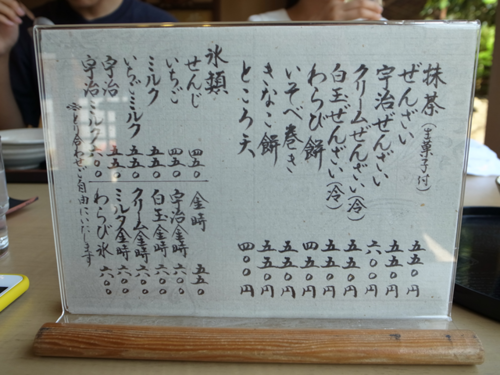 抹茶(生菓子付) 五五〇円
ぜんざい 五五〇円
宇治ぜんざい 六〇〇円
クリームぜんざい(冷) 五五〇円
白玉ぜんざい(冷) 五五〇円
わらび餅 四五〇円
いそべ巻き 五五〇円
きなこ餅 五五〇円
ところ天 四〇〇円
氷類
せんじ 四五〇
いちご 四五〇
ミルク 五五〇
いちごミルク 五五〇
宇治 五五〇
宇治ミルク 六〇〇
金時 五五〇
宇治金時 六〇〇
白玉金時 六〇〇
クリーム金時 六〇〇
ミルク金時 六〇〇
わらび氷 六〇〇
※とり合わせご自由にいたします